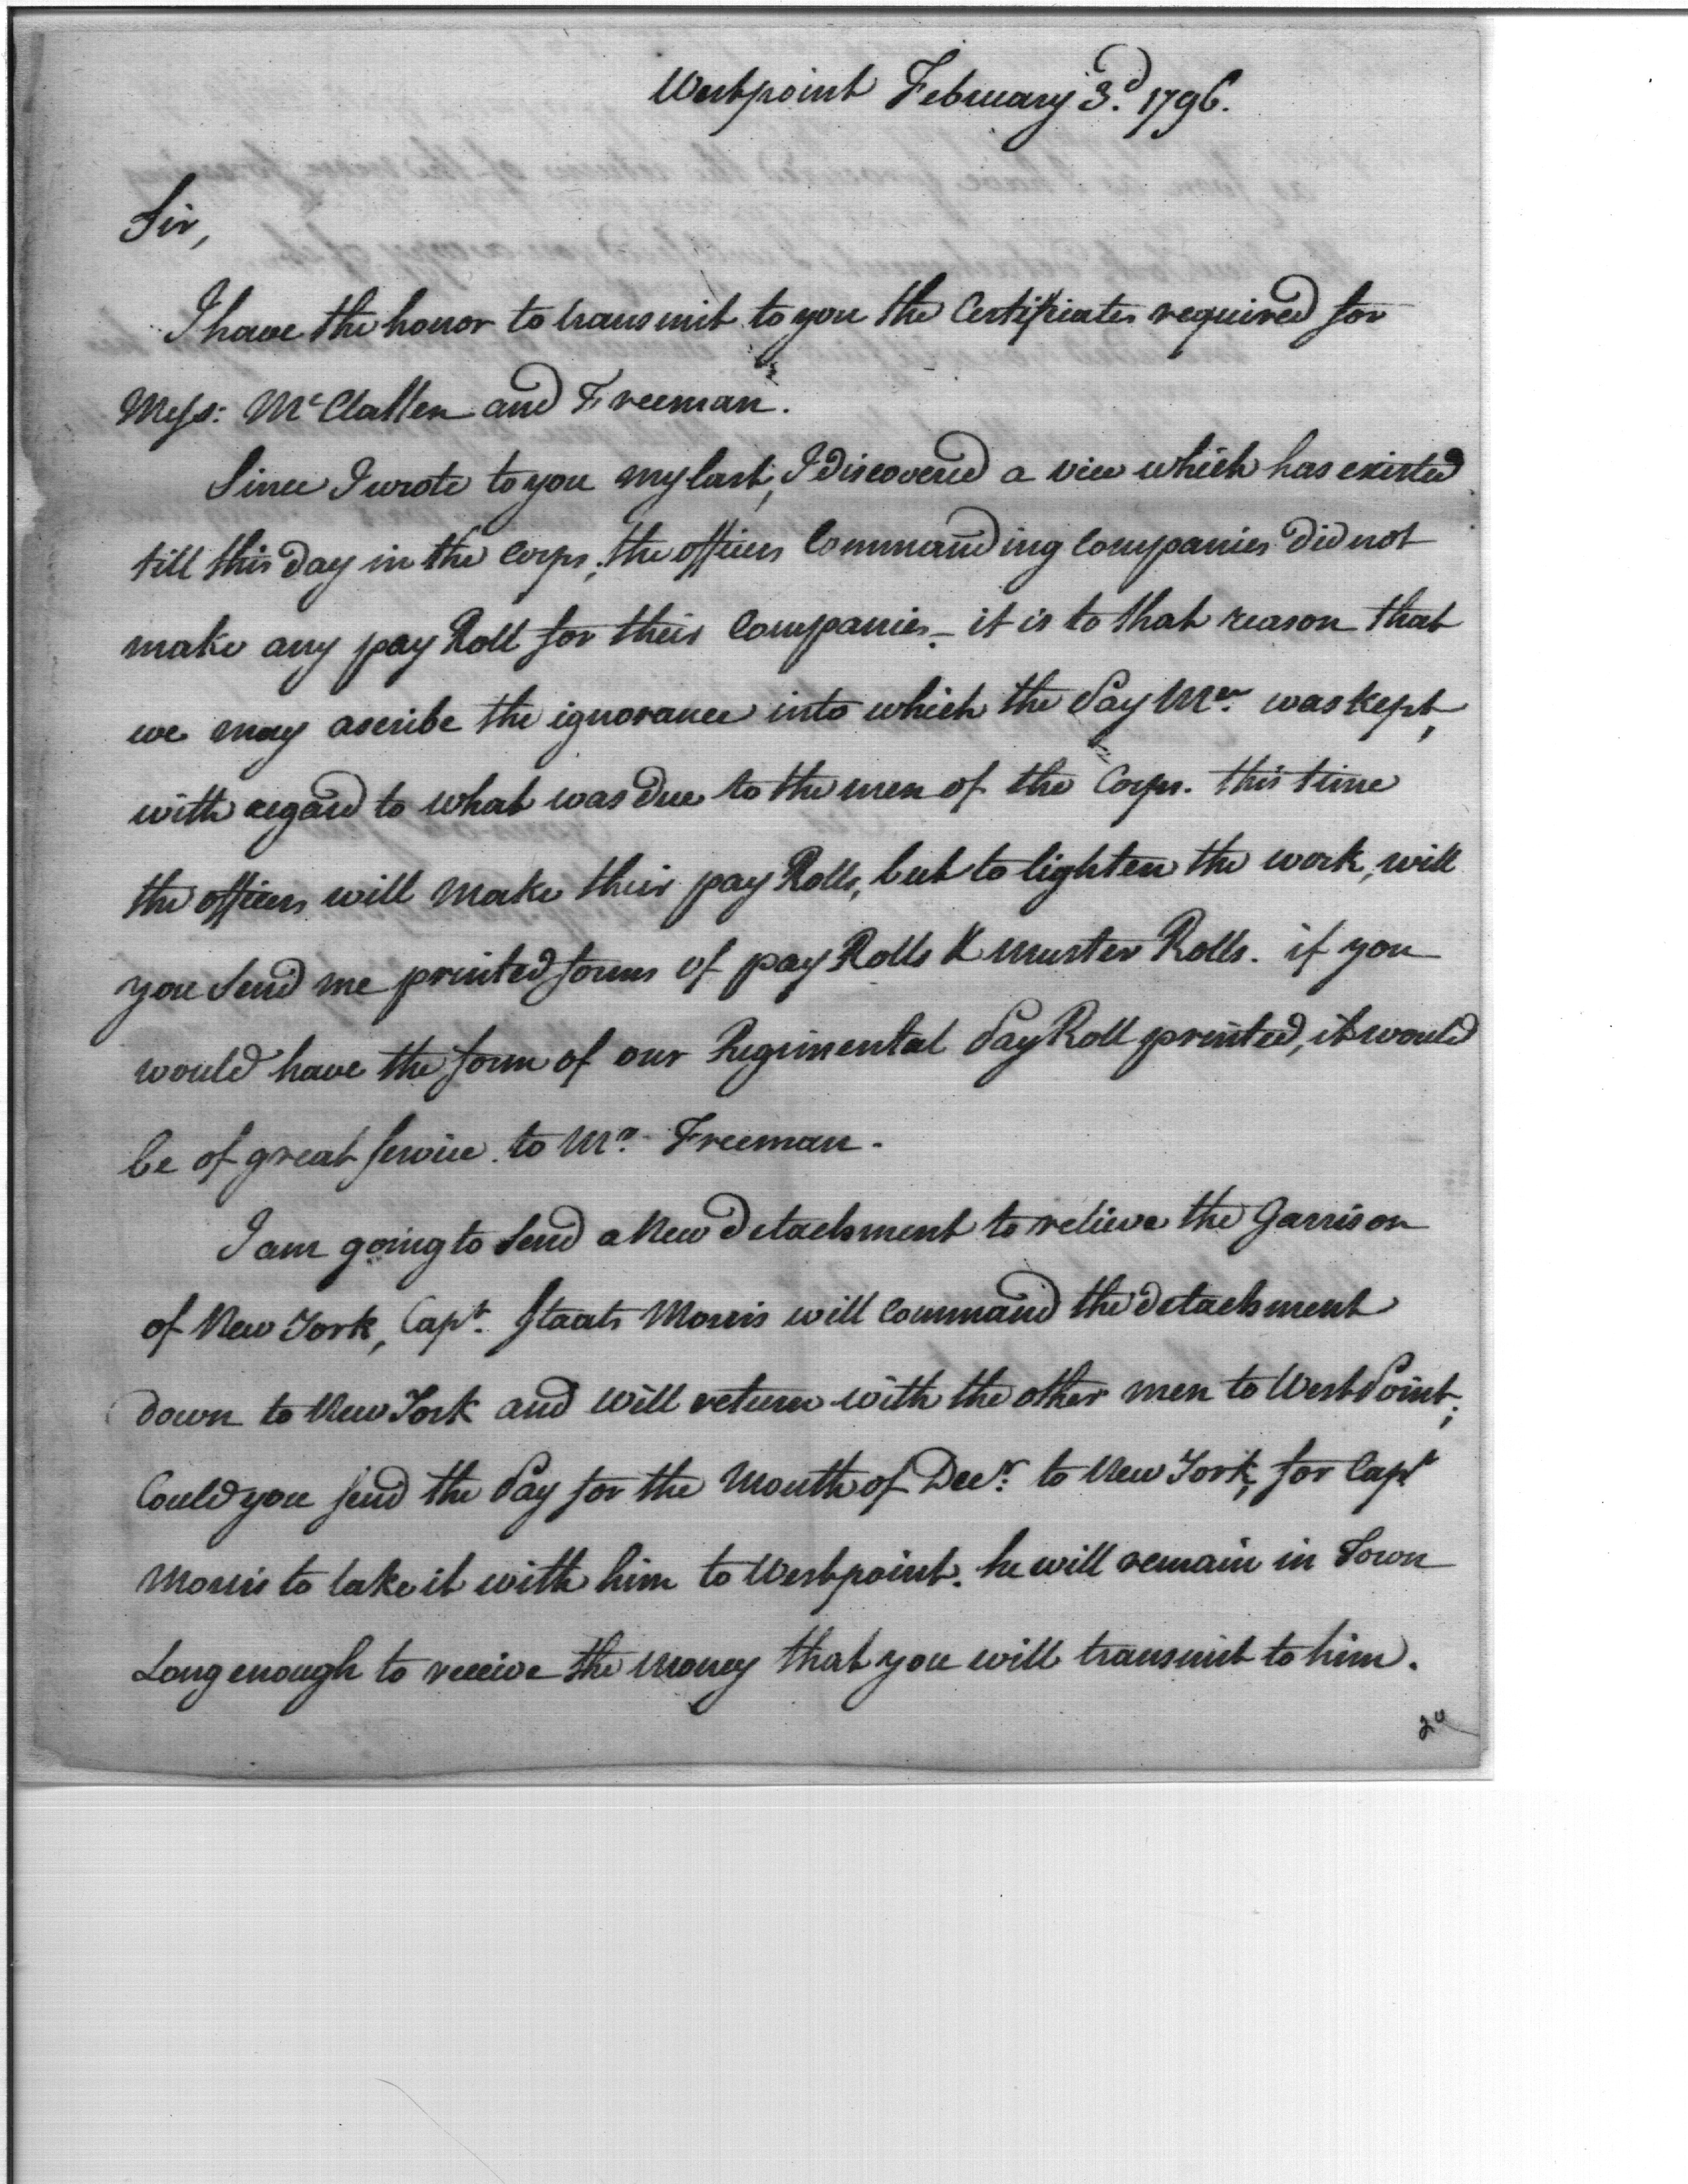 Westpoint February 3.d 1796.
Sir,
I have the honor to transmit to you the Certificates required for
Mess: McClallen and Freeman.
Since I wrote to you my last, I discovered a vice which has existed
till this day in the Corps; the officers Commanding Companies did not
make any pay Roll for their Companies - it is to that reason that
we may ascribe the ignorance into which the Pay Mer. was kept,
with regard to what was due to the men of the Corps. this time
the officers will make their pay Rolls, but to lighten the work, will
you send me printed forms of pay Rolls & muster Rolls. if you
would have the form of our Regimental Pay Roll printed, it would
be of great service to Mr. Freeman.
I am going to send a New detachment to relieve the Garrison
of New York, Capt. Staats Morris will command the detachment
down to New York and will return with the other men to West Point;
Could you send the Pay for the Month of Decr: to New York, for Capt
Morris to take it with him to Westpoint. he will remain in Town
Long enough to receive the money that you will transmit to him.